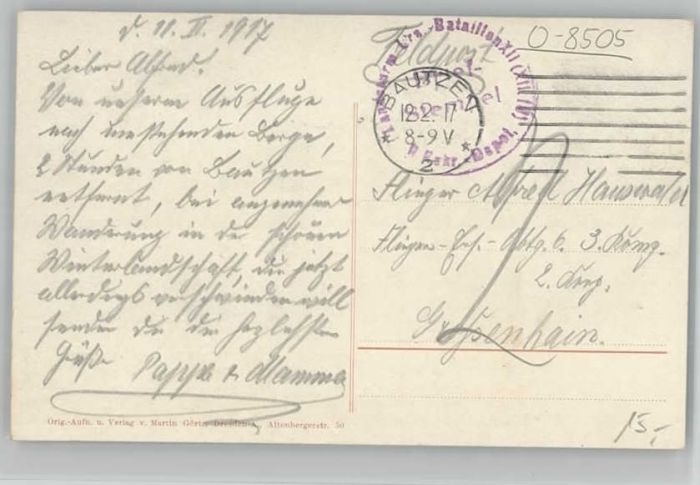 d. 11. II. 1917
Lieber Alfred.
Von unserm Ausfluge
nach umstehenden Berge,
2 Stunden von Bautzen
entfernt, bei angenehmer
Wanderung in der schönen
Winterlandschaft, die jetzt
allerdings verschwinden will
senden dir die herzlichsten
Grüße Pappa & Mamma
Orig.-Aufn. u. Verlag v. Martin Görtz, Dresden-A., Altenbergerstr. 50
O-8505
Feldpost
Landsturm-Inf.-Ers.-Bataillon XII
Stempel
Depot.
BAUTZEN
12.2.17
8-9 V
* 2 *
Flieger Alfred Hauswald
Flieger-Ers.-Abtg. 6. 3. Komp.
2. Korp.
Großenhain.
15,-